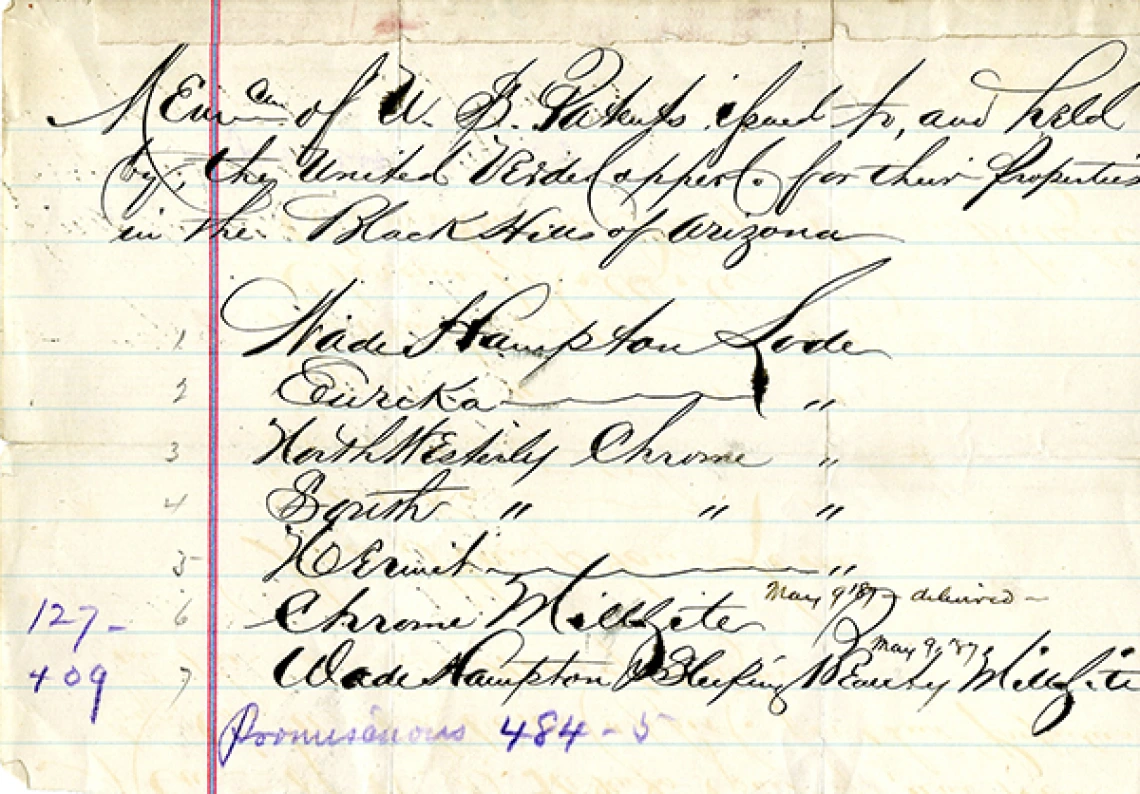 Memdm of U. S. Patents issued to, and held
by, the United Verde Copper Co. for their Properties
in the Black Hills of Arizona
1 Wade Hampton Lode
2 Eureka ———— "
3 North Westerly Chrome "
4 South " " "
5 Hermit ———— "
May 9 '87 - delivered -
127 - 6 Chrome Millsite
May 9, '87,
409 7 Wade Hampton & Sleeping Beauty Millsite
Promiscuous 484 - 5